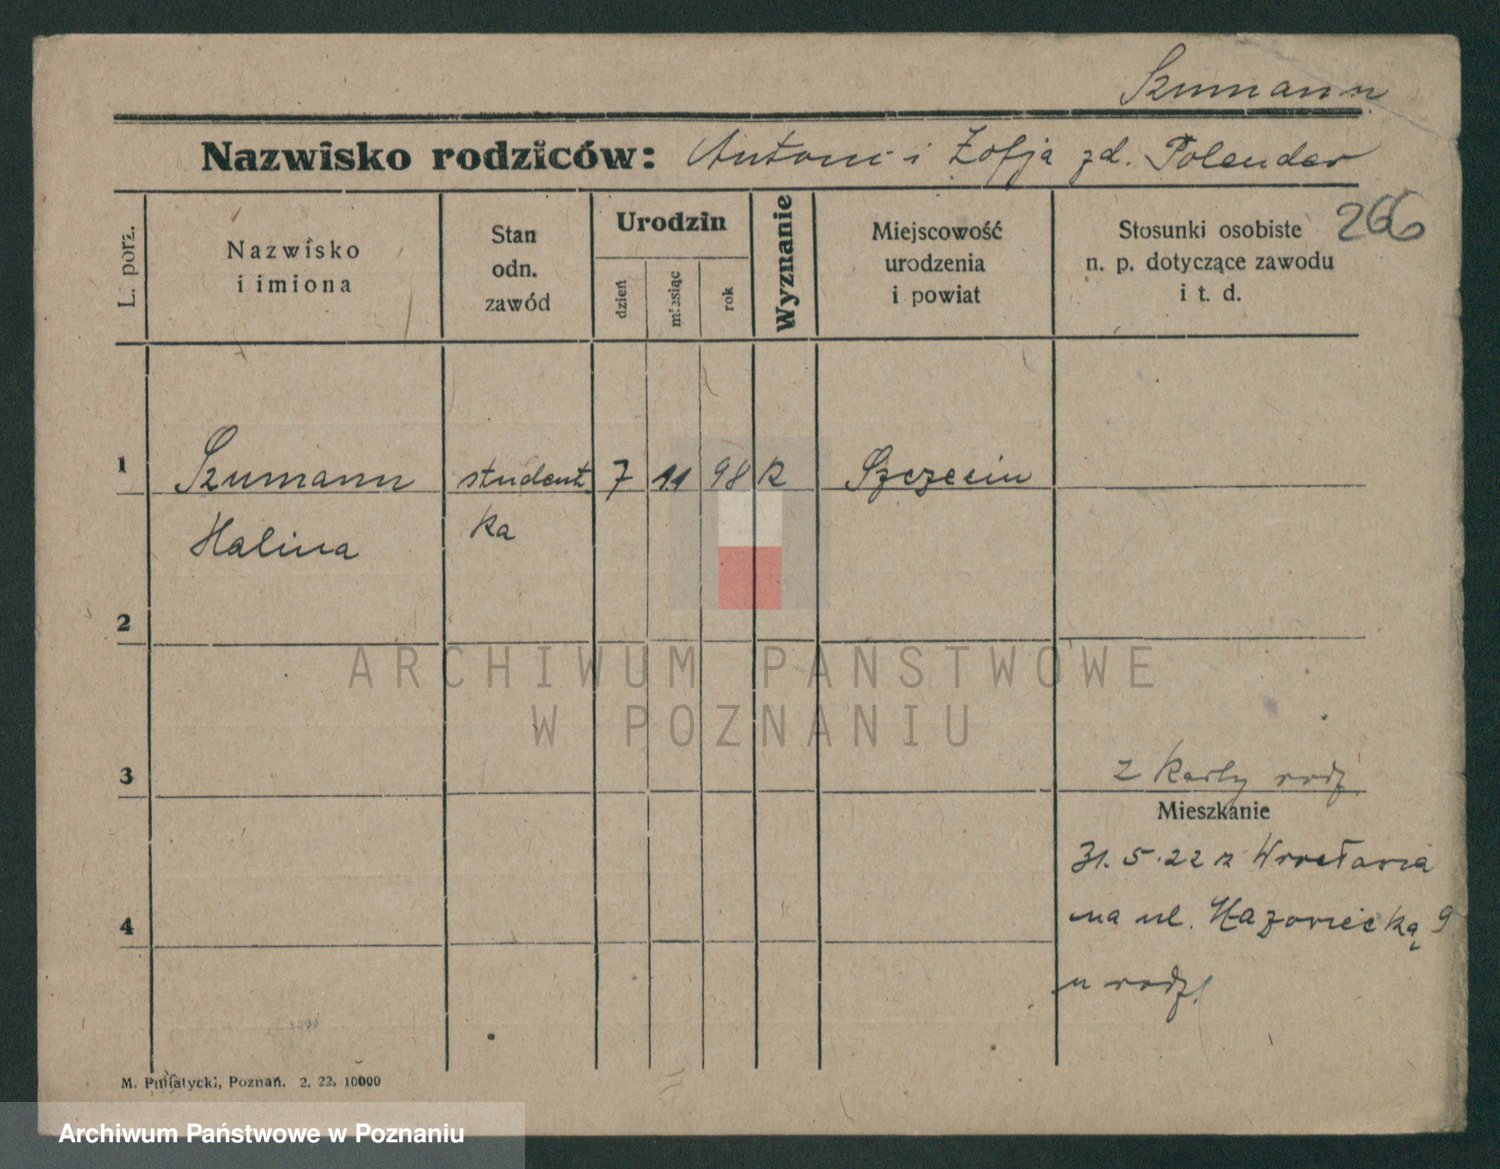 Szumann
Nazwisko rodziców: Antoni i Zofja zd. Polender
266
L. porz.
Nazwisko
i imiona
Stan
odn.
zawód
Urodzin
dzień
miesiąc
rok
Wyznanie
Miejscowość
urodzenia
i powiat
Stosunki osobiste
n. p. dotyczące zawodu
i t. d.
1 Szumann student 7 11 98 k Szczecin
Halina ka
2
ARCHIWUM PAŃSTWOWE
W POZNANIU
3
z karty rodz.
Mieszkanie
31.5.22 z Wrocławia
4
na ul. Mazowiecką 9
u rodz.
M. Putiatycki, Poznań. 2. 22. 10000
Archiwum Państwowe w Poznaniu